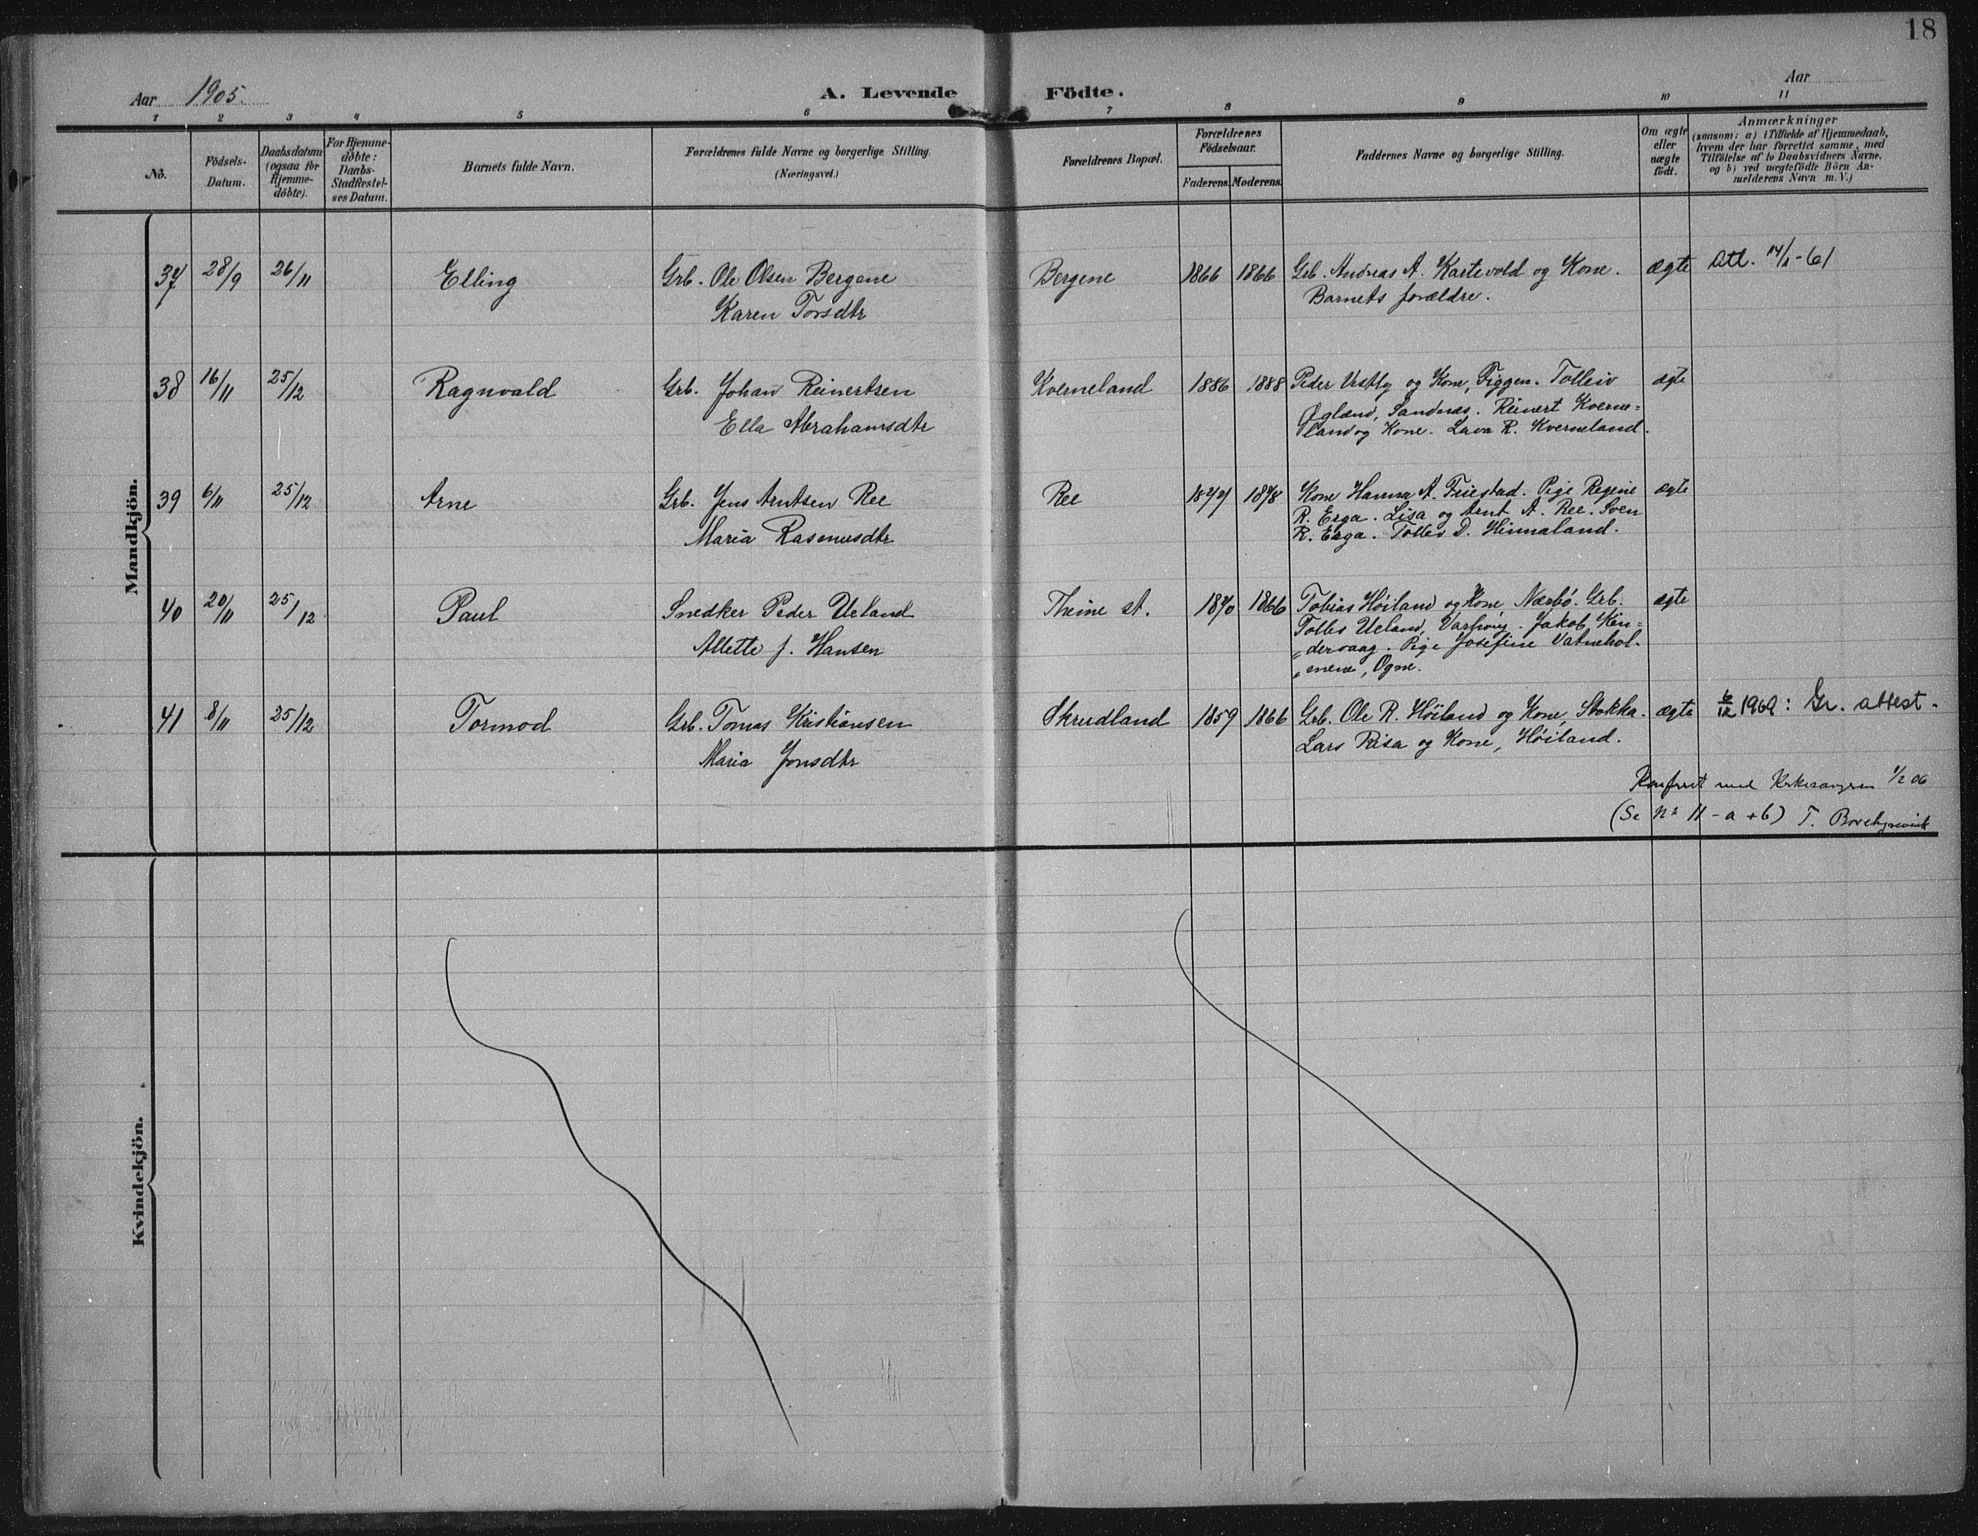 18
Aar 1905.
A. Levende Födte.
Aar
1 2 3 4 5 6 7 8 9 10 11
No.
Födsels-Datum.
Daabsdatum (ogsaa for Hjemme-döbte).
For Hjemme-döbte: Daabs-Stadfæstel-ses Datum.
Barnets fulde Navn.
Forældrenes fulde Navne og borgerlige Stilling. (Næringsvei.)
Forældrenes Bopæl.
Forældrenes Födselsaar.
Faderens. Moderens.
Faddernes Navne og borgerlige Stilling.
Om ægte eller uægte födt.
Anmærkninger
(saasom: a) i Tilfælde af Hjemmedaab,
hvem der har forrettet samme, med
Tilföielse af to Daabsvidners Navne,
og b) ved uægtefödte Börn An-
melderens Navn m. V.)
Mandkjön.
37 28/9 26/11 Elling Grb. Ole Olsen Bergene Bergene 1866 1866 Grb. Andreas A. Kartevold og Kone. ægte Att. 14/1-61
Karen Torsdtr Barnets forældre.
38 16/11 25/12 Ragnvald Grb. Johan Reinertsen Kverneland 1886 1888 Peder Vestly og Kone, Figgen. Tolleiv ægte
Ella Abrahamsdtr Øgland, Sandnæs. Reinert Kverne=
land og Kone. Lava R. Kverneland.
39 6/11 25/12 Arne Grb. Jens Arntsen Ree Ree 1878 Kone Hanna A. Friestad. Pige Regine ægte
Maria Rasmusdtr R. Erga. Lisa og Arnt A. Ree. Sven
R. Erga. Tolles D. Hinnaland.
40 20/11 25/12 Paul Snedker Peder Ueland Thime st. 1870 1866 Tobias Høiland og Kone, Nærbø. Grb. ægte
Allette J. Hansen Tolles Ueland, Varhoug. Jakob Kin=
dervaag. Pige Josefine Vatnehol-
mene, Ogne.
41 8/11 25/12 Tormod Grb. Tomas Kristiansen Skrudland 1859 1866 Grb. Ole R. Høiland og Kone, Stokka. ægte 6/12 1962: Gr. attest.
Maria Jonsdtr Lars Risa og Kone, Høiland.
Konferert med Kirkesangeren 1/2 06
(Se No 11 - a + b) T. Borchgrevink
Kvindekjön.